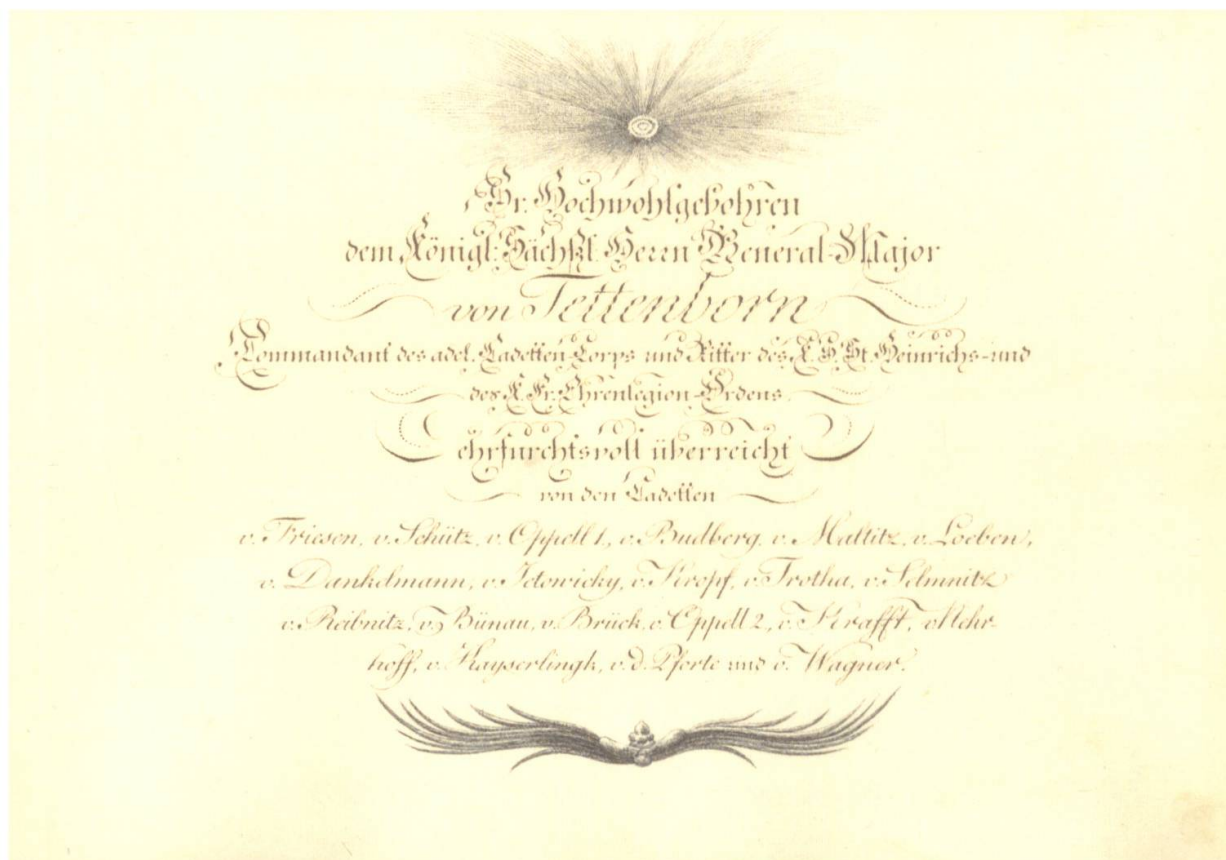 Sr. Hochwohlgebohren
dem Königl: Sächßl. Herrn General-Major
von Tettenborn
Commandant des adel. Cadetten-Corps und Ritter des K. S. St. Heinrichs- und
des K. Fr. Ehrenlegion-Ordens
ehrfurchtsvoll überreicht
von den Cadetten
v. Friesen, v. Schütz, v. Oppell 1, v. Budberg, v. Maltitz, v. Loeben,
v. Dankelmann, v. Kropf, v. Trotha, v. Selmnitz
v. Reibnitz, v. Bünau, v. Brück, v. Oppell 2, v. Krafft, v. Mehr-
hoff, v. Kayserlingk, v. d. Pforte und v. Wagner.